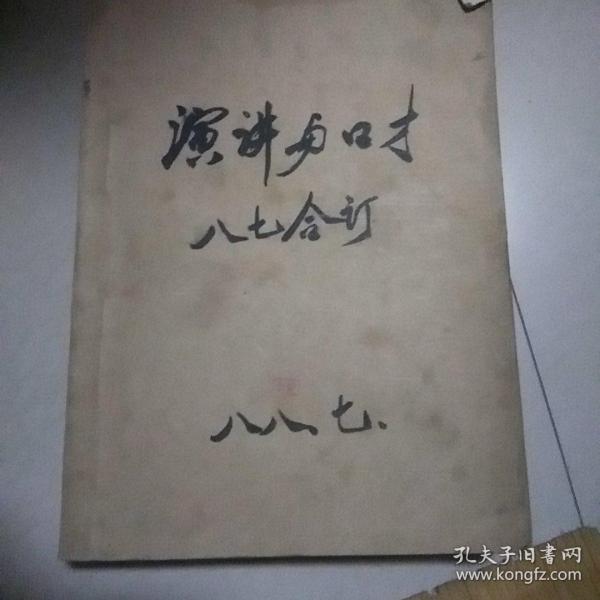 演讲与口才
八七合订
八八、七、
孔夫子旧書网
www.kongfz.com